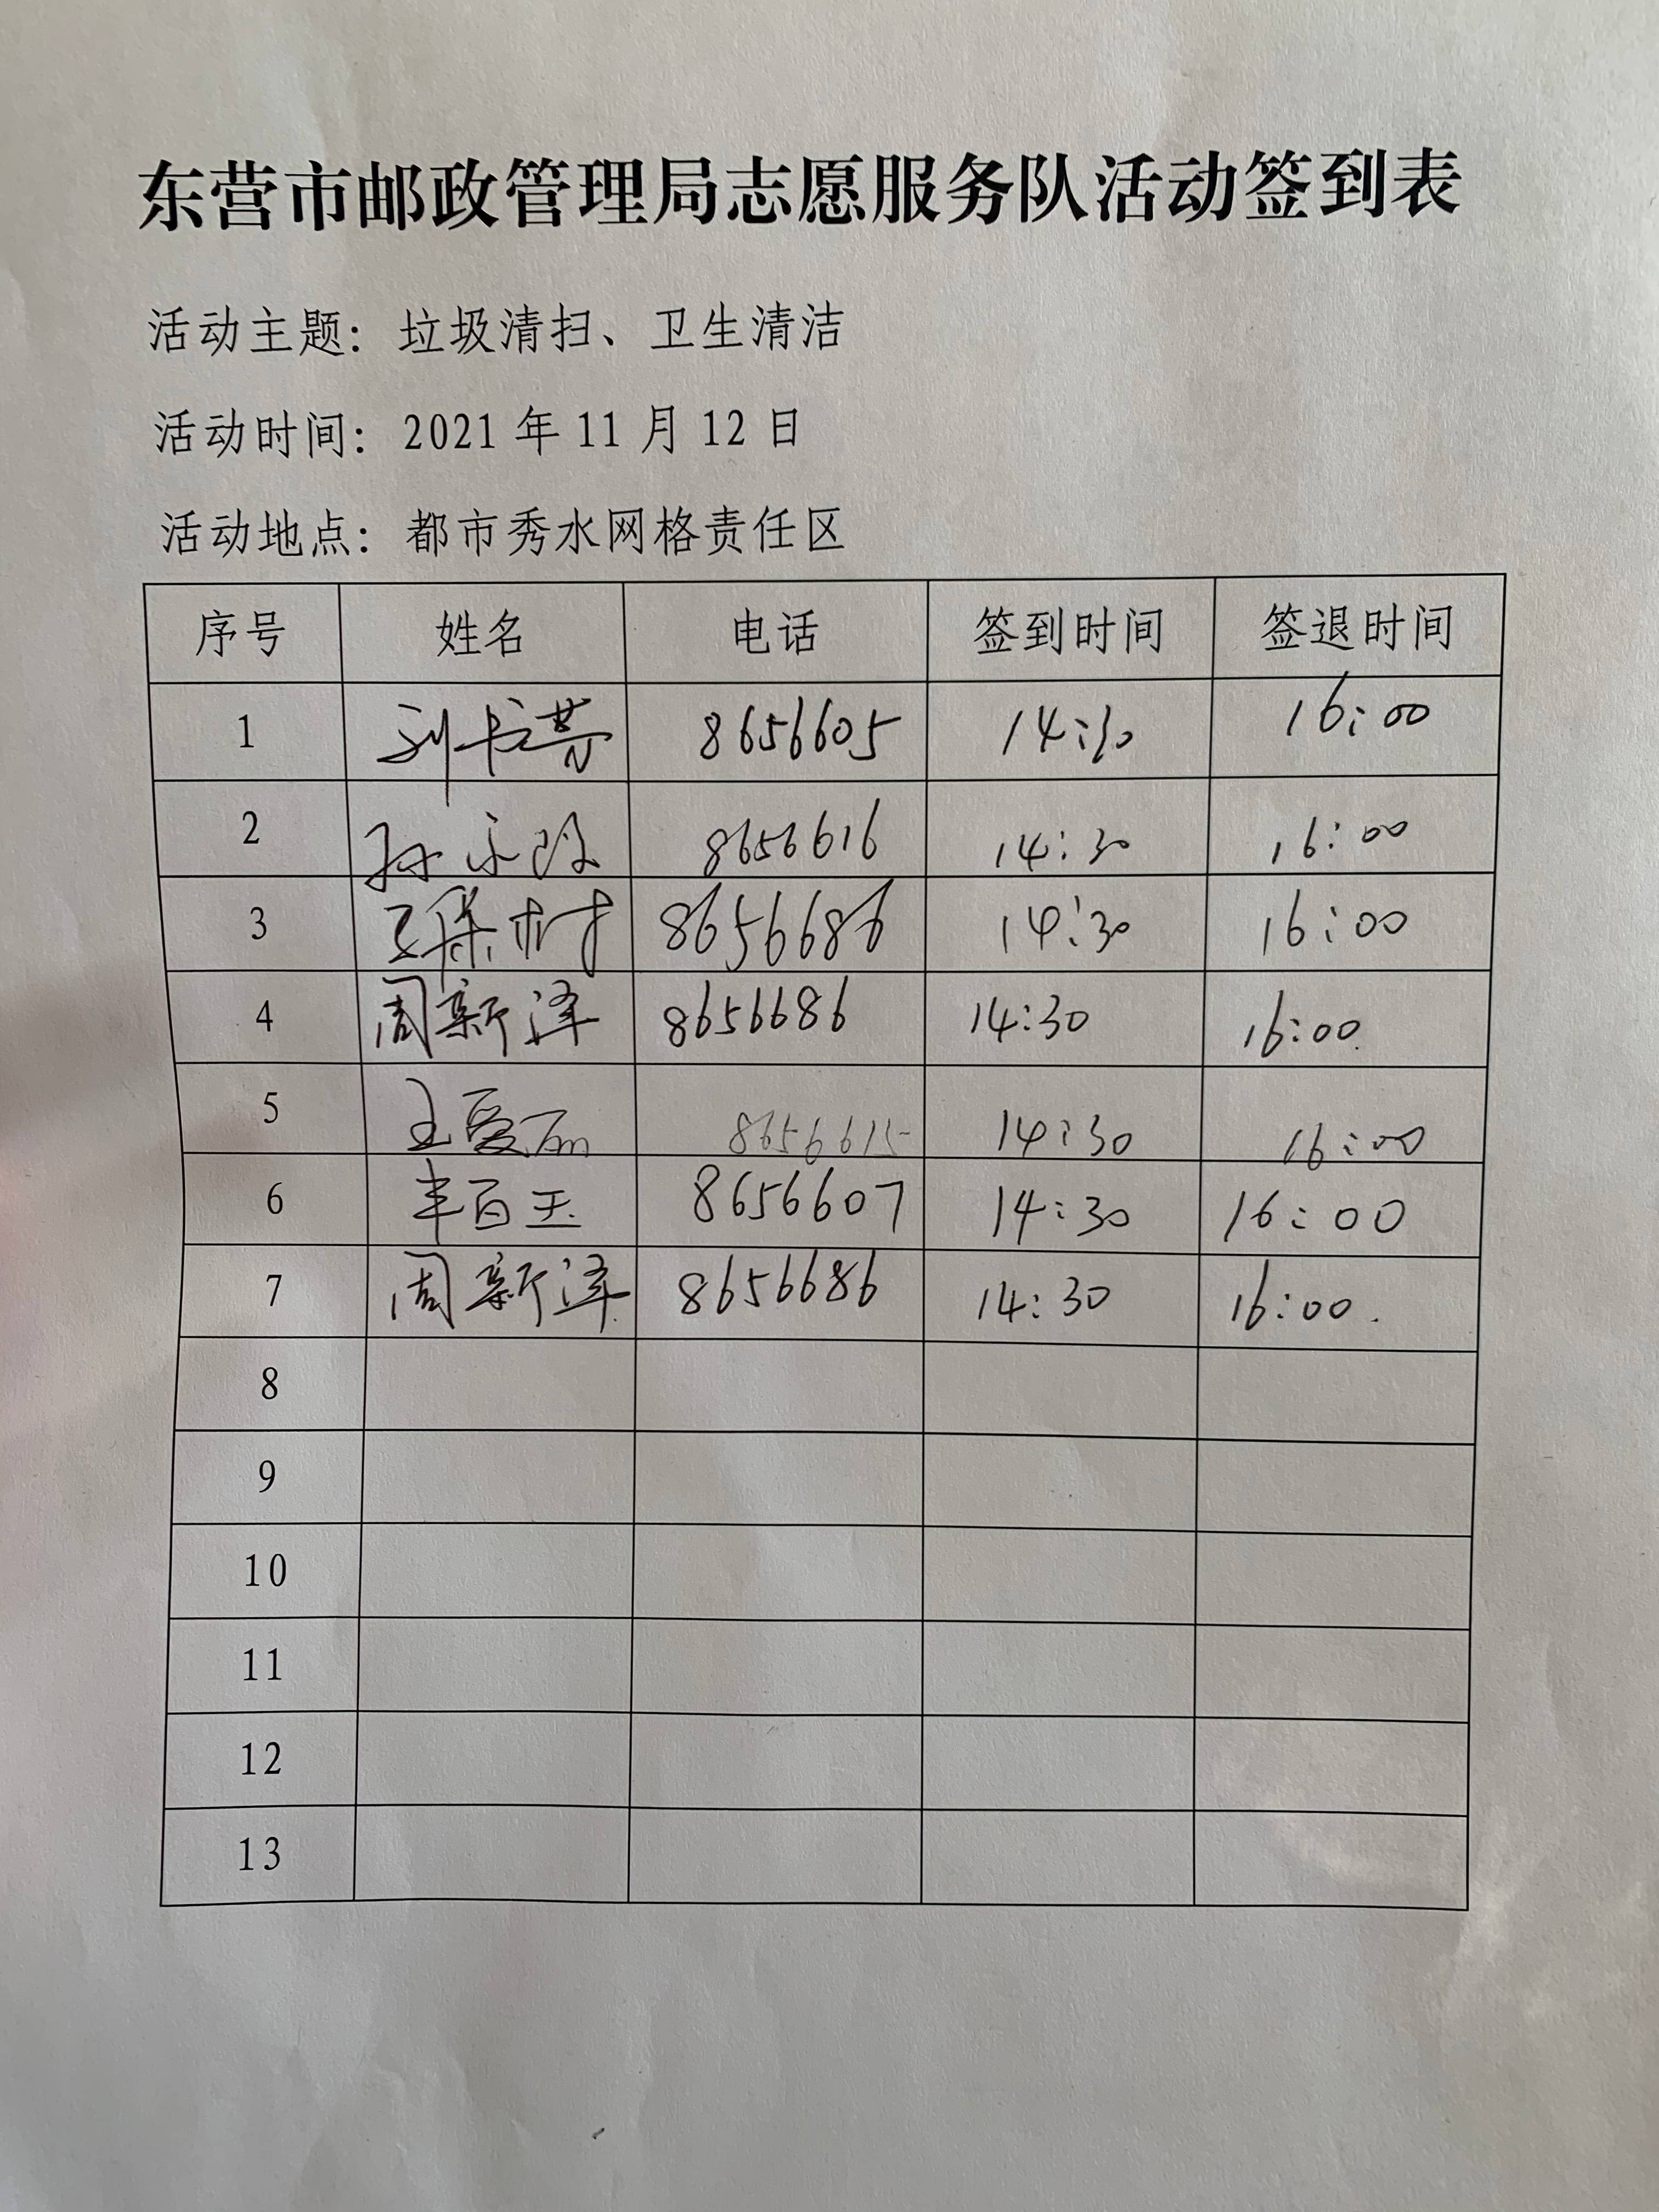 东营市邮政管理局志愿服务队活动签到表
活动主题：垃圾清扫、卫生清洁
活动时间：2021年11月12日
活动地点：都市秀水网格责任区
序号 姓名 电话 签到时间 签退时间
1 刘书芳 8656605 14:30 16:00
2 孙 8656616 14:30 16:00
3 王 村 8656686 14:30 16:00
4 周新泽 8656686 14:30 16:00
5 王爱丽 8656615 14:30 16:00
6 丰百玉 8656607 14:30 16:00
7 周新泽 8656686 14:30 16:00.
8
9
10
11
12
13